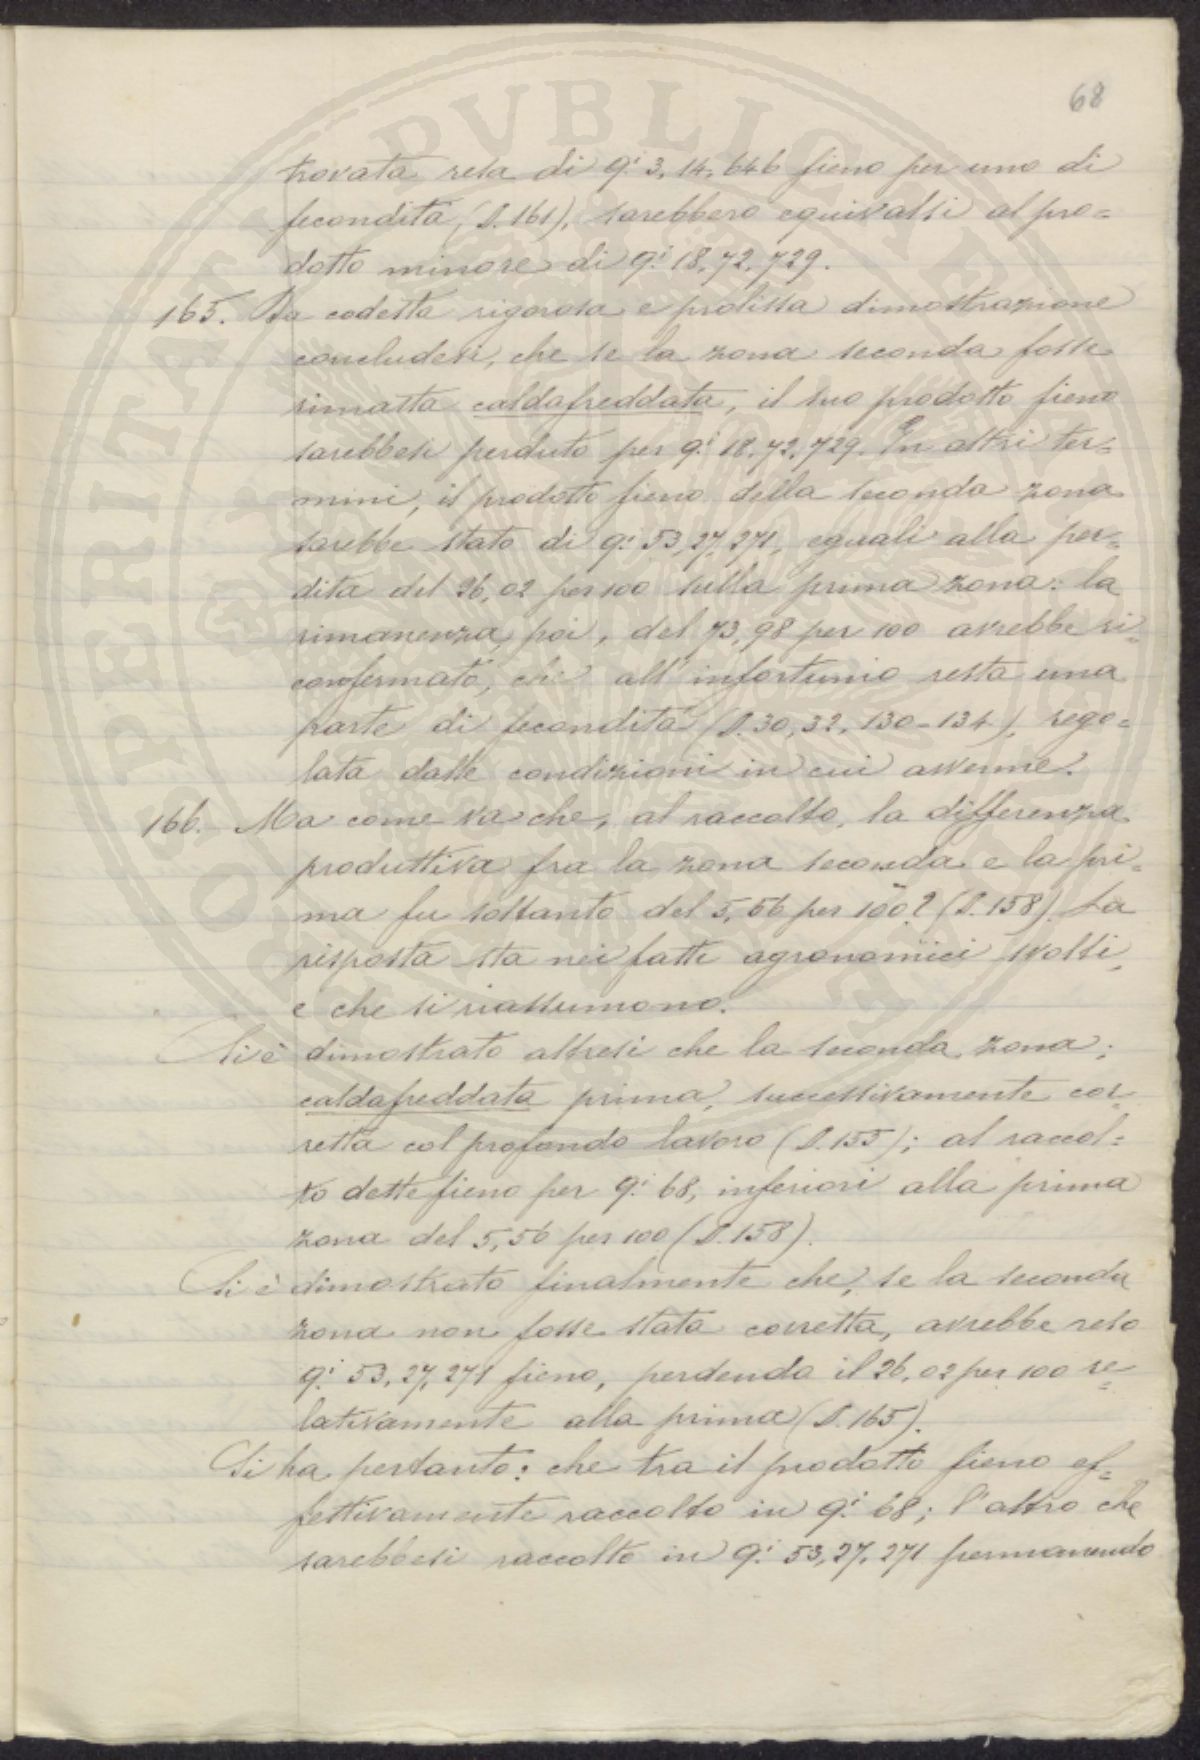 68
trovata resa di q.i 3,14,646 fieno per uno di
fecondità, (§. 161), sarebbero equivalsi al pro=
dotto minore di q.i 18,72,729.
165. Da codesta rigorosa e prolissa dimostrazione
concludesi, che se la zona seconda fosse
rimasta caldafreddata, il suo prodotto fieno
sarebbesi perduto per q.i 18,72,729. In altri ter=
mini, il prodotto fieno della seconda zona
sarebbe stato di q.i 53,27,271, eguali alla per=
dita del 26,02 per 100 sulla prima zona: la
rimanenza, poi, del 73,98 per 100 avrebbe ri=
confermato, che all'infortunio resta una
parte di fecondità (§. 30, 32, 130-134), rego=
lata dalle condizioni in cui avvenne.
166. Ma come va che, al raccolto, la differenza
produttiva fra la zona seconda e la pri=
ma fu soltanto del 5,56 per 100? (§. 158). La
risposta sta nei fatti agronomici svolti,
e che si riassumono.
Si è dimostrato altresì che la seconda zona;
caldafreddata prima, successivamente cor=
retta col profondo lavoro (§. 155); al raccol=
to dette fieno per q.i 68, inferiori alla prima
zona del 5,56 per 100 (§. 158).
Si è dimostrato finalmente che, se la seconda
zona non fosse stata corretta, avrebbe reso
q.i 53,27,271 fieno, perdendo il 26,02 per 100 re=
lativamente alla prima (§. 165).
Si ha pertanto: che tra il prodotto fieno ef=
fettivamente raccolto in q.i 68; l'altro che
sarebbesi raccolto in q.i 53,27,271 permanendo